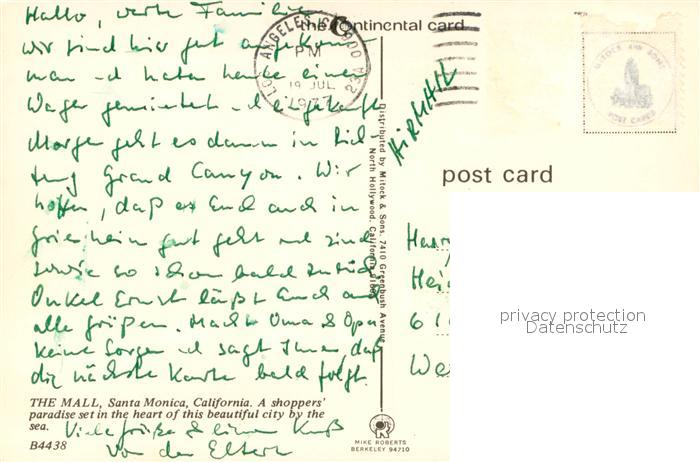 Hallo, werte Familie
wir sind hier gut angekom-
men u d haben heute einen
Wagen gemietet u d eingekauft
Morgen geht es dann in Rich-
tung Grand Canyon. Wir
hoffen, daß es Euch auch in
Griesheim gut geht und sind
sowie so schon bald zurück
Onkel Ernst läßt Euch auch
alle grüßen. Macht Oma & Opa
keine Sorgen u d sagt Ihnen, daß
die nächste Karte bald folgt.
THE MALL, Santa Monica, California. A shoppers'
paradise set in the heart of this beautiful city by the
sea.
Viele Grüße & einen Kuß
B4438
von den Eltern
the continental card
LOS ANGELES, CA 900
PM
19 JUL
1977
AIR MAIL
Distributed by Mitock & Sons, 7410 Greenbush Avenue,
North Hollywood, California 91605
MIKE ROBERTS
BERKELEY 94710
MITOCK AND SONS
POST CARDS
post card
Hei
61
We
privacy protection
Datenschutz